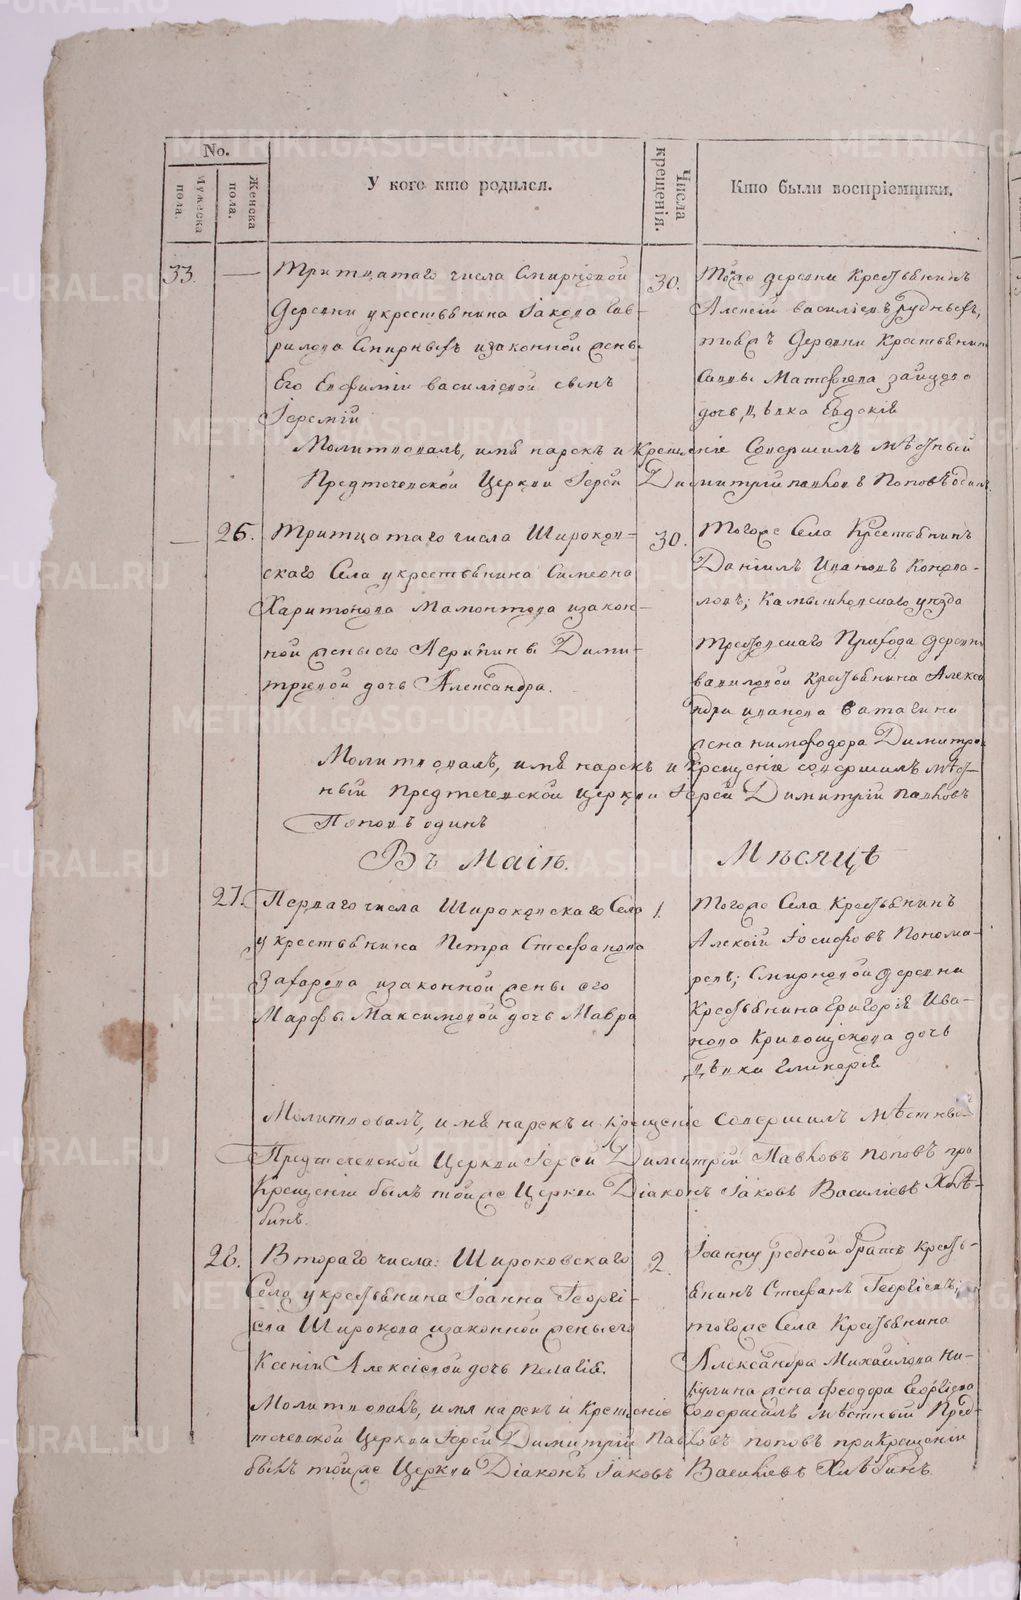 No.
Мужеска пола.
Женска пола.
У кого кто родился.
Числа крещенія.
Кто были воспріемники.
33. — Тритцатаго числа Смирновой
деревни у крестьянина Іакова Гав-
рилова Смирныхъ изаконной жены
Его Евфиміи Василіевой сынъ
Іеремій
30. Тойже деревни Крестьянинъ
Алексій Василіевъ
деревни Крестьянина
Матвѣева Зайцова
дочь дѣвка Евдокія
Молитвовалъ, имя нарекъ и Крещеніе Совершилъ мѣстный
Предтечевской Церкви Іерей Димитрій Павловъ Поповъ одинъ.
— 26. Тритцатаго числа Широков-
скаго Села укрестьянина Симеона
Харитонова Мамонтова изакон-
ной жены его Димит-
тріевой дочь Александра.
30. Тогоже Села Крестьянинъ
Даніилъ Ивановъ Конова-
ловъ; Камышловскаго уѣзда
Прихода деревни
Вавиловой Крестьянина Алекса
ндра Иванова Ватагина
жена Нимфодора Димитрі
Молитвовалъ, имя нарекъ и Крещеніе совершилъ мѣст-
ный Предтечевской Церкви Іерей Димитрій Павловъ
Поповъ одинъ
Въ Маіѣ. Мѣсяцѣ
27. Перваго числа Широковскаго Села
у крестьянина Петра Стефанова
Захарова изаконной жены его
Марфы Максимовой дочь Мавра
1. Тогоже Села Крестьянинъ
Алексій Іосифовъ Понома-
ревъ; Смирновой деревни
Крестьянина Григорія Ива-
нова Кривощокова дочь
дѣвка Гликерія
Молитвовалъ, имя нарекъ и крещеніе совершилъ мѣстны-
Предтечевской Церкви Іерей Димитрій Павловъ Поповъ при
Крещеніи былъ тойже Церкви Діаконъ Іаковъ Василіевъ Хлѣ-
бинъ.
28. Втораго числа: Широковскаго
Села укрестьянина Іоанна Георгі-
ева Широкова изаконной жены его
Ксеніи Алексіевой дочь Пелагія.
2. Іоанну родной братъ Кресть-
янинъ Стефанъ Георгіевъ;
тогоже Села Крестьянина
Александра Михайлова Ни-
кулина жена Феодора Георгіева
Молитвовалъ, имя нарекъ и Крещеніе Совершилъ мѣстный Пред-
течевской Церкви Іерей Димитрій Павловъ Поповъ при Крещеніи
былъ тойже Церкви Діаконъ Іаковъ Василіевъ Хлѣбинъ.
METRIKI.GASO-URAL.RU